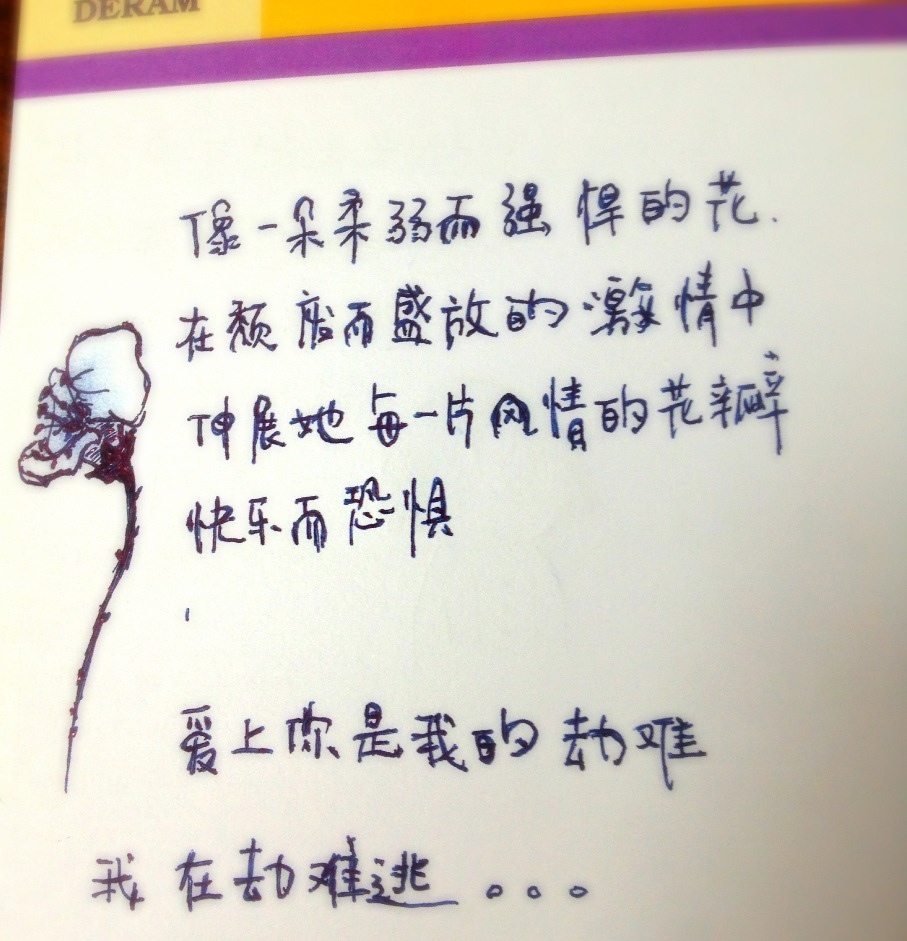 DERAM
像一朵柔弱而强悍的花.
在颓废而盛放的激情中
伸展她每一片风情的花瓣
快乐而恐惧
爱上你是我的劫难
我在劫难逃。。。